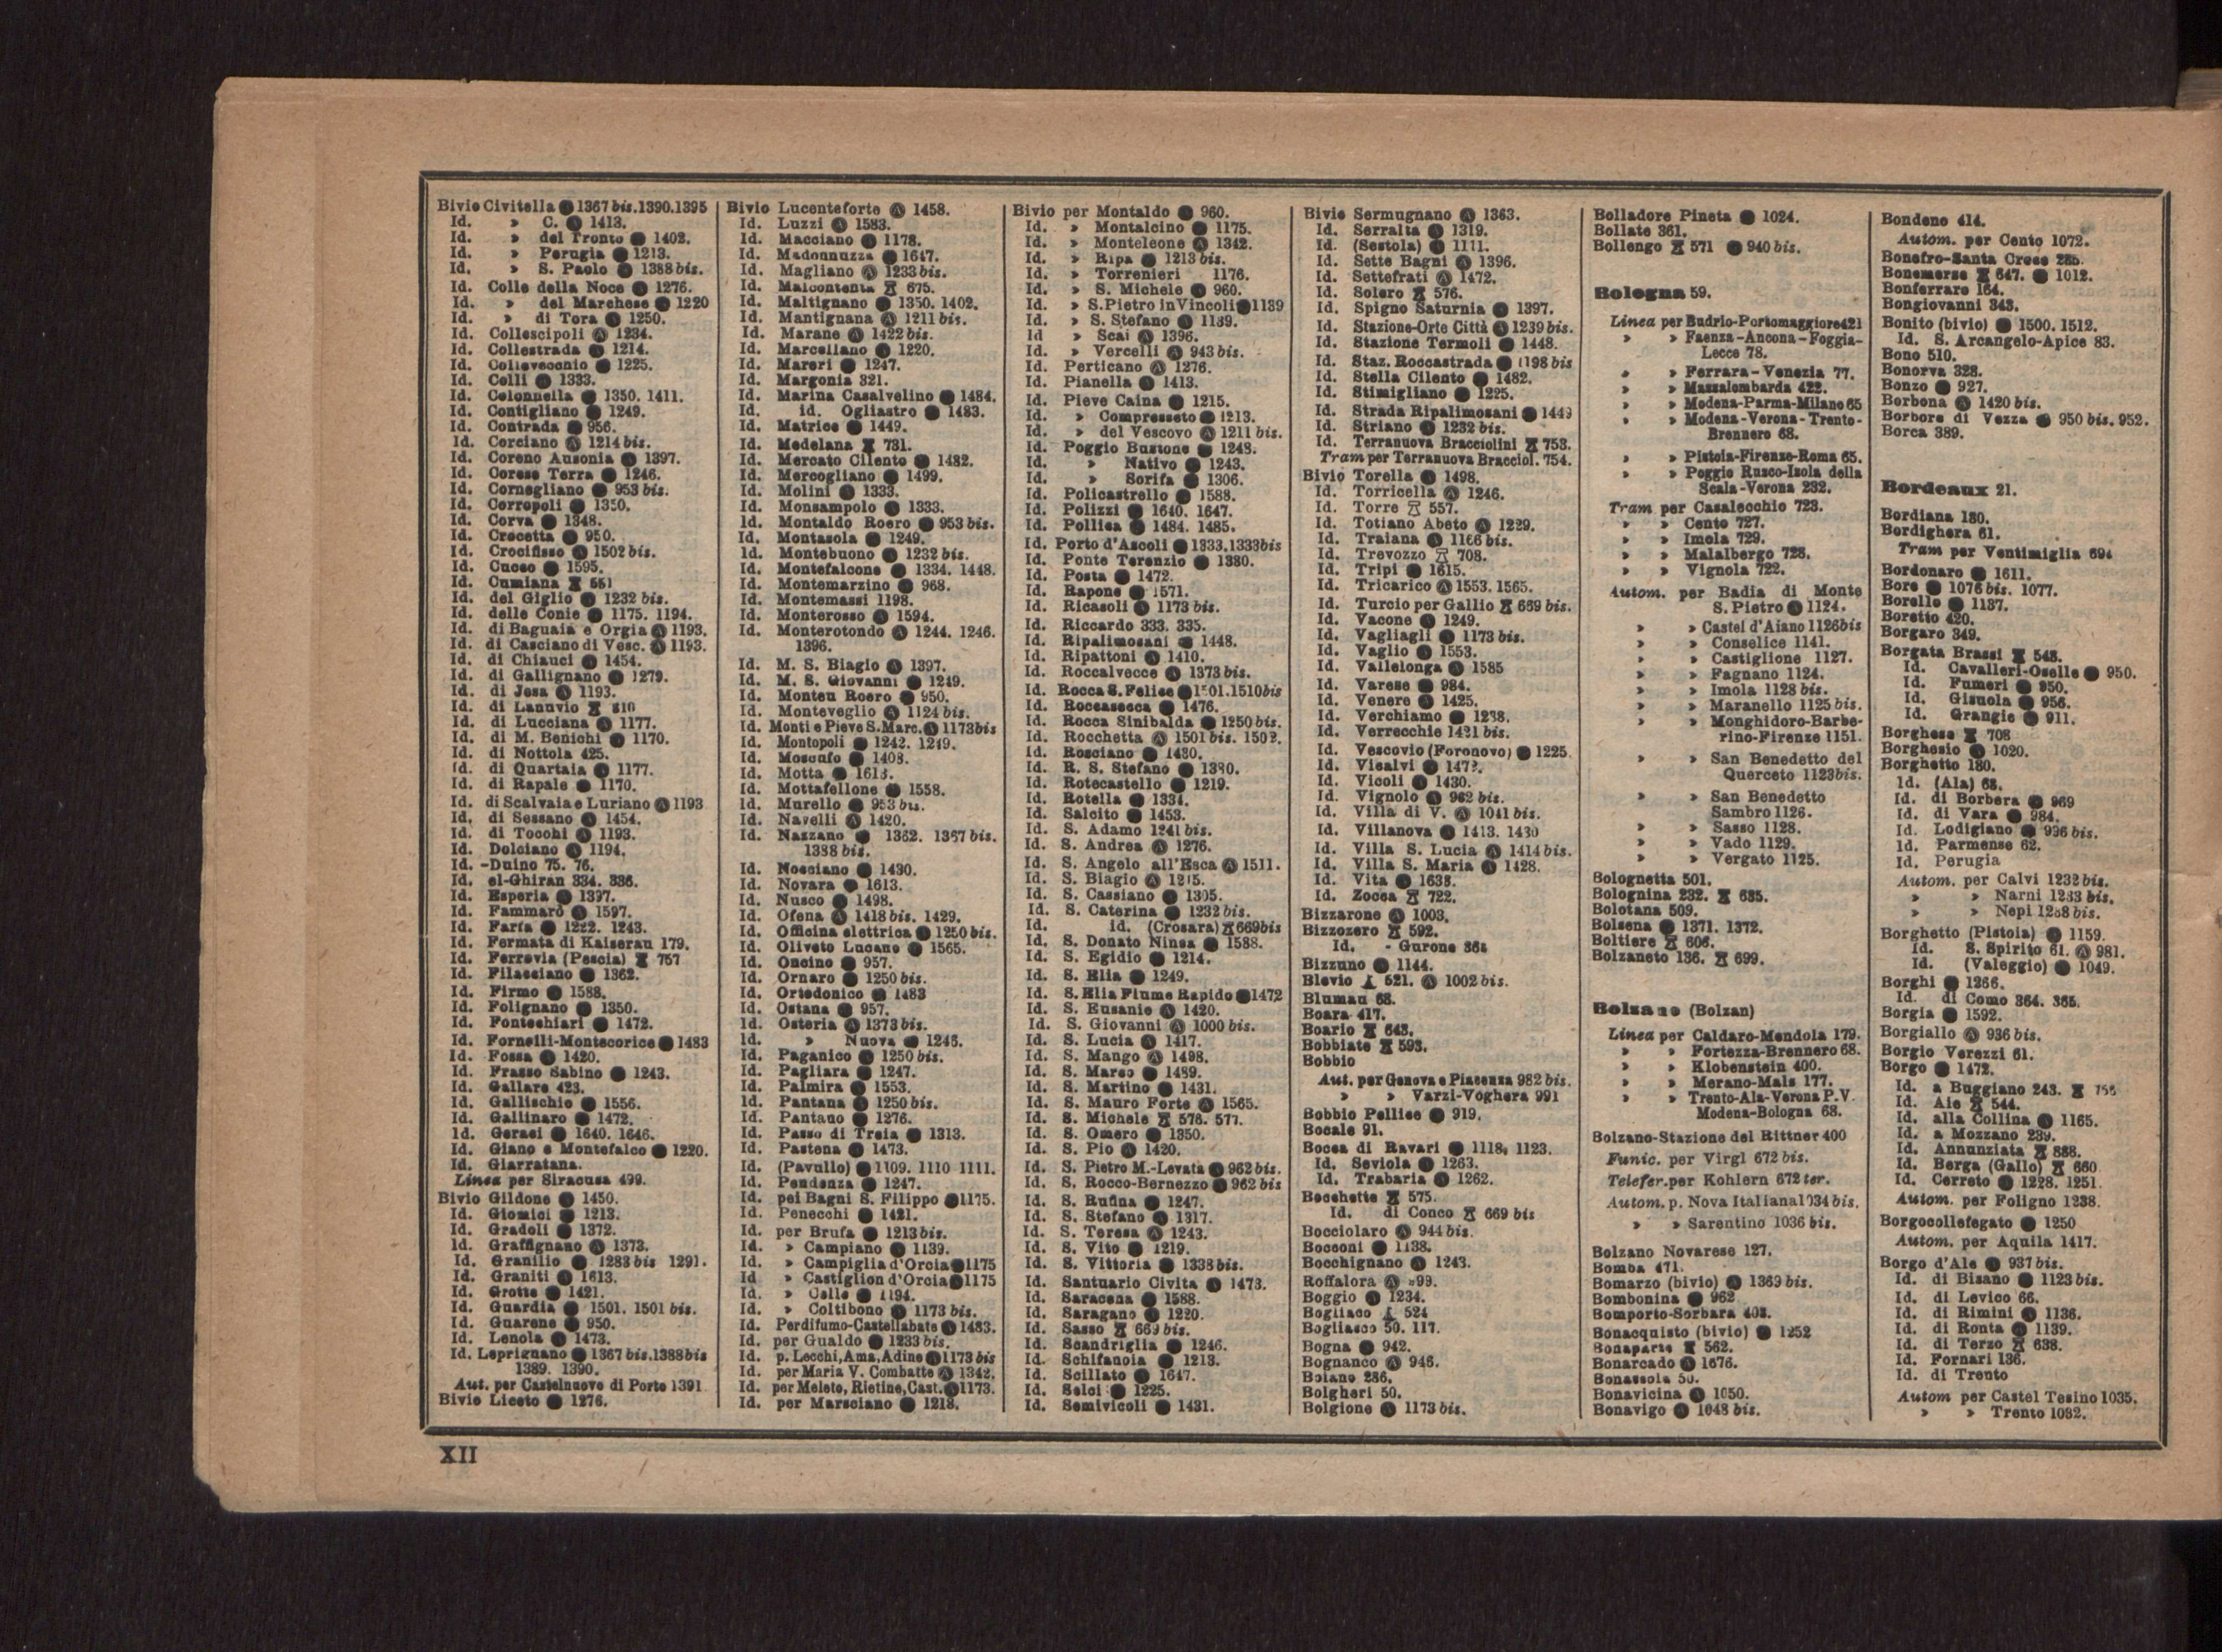 Bivio Civitella Ⓐ 1367 bis.1390.1395
Id. » C. Ⓐ 1413.
Id. » del Tronto Ⓐ 1402.
Id. » Perugia Ⓐ 1213.
Id. » S. Paolo Ⓐ 1388 bis.
Id. Colle della Noce Ⓐ 1276.
Id. » del Marchese Ⓐ 1220
Id. » di Tora Ⓐ 1250.
Id. Collescipoli Ⓐ 1234.
Id. Collestrada Ⓐ 1214.
Id. Collevecchio Ⓐ 1225.
Id. Colli Ⓐ 1333.
Id. Colonnella Ⓐ 1350. 1411.
Id. Contigliano Ⓐ 1249.
Id. Contrada Ⓐ 956.
Id. Corciano Ⓐ 1214 bis.
Id. Coreno Ausonia Ⓐ 1397.
Id. Corese Terra Ⓐ 1246.
Id. Cornegliano Ⓐ 953 bis.
Id. Corropoli Ⓐ 1350.
Id. Corva Ⓐ 1348.
Id. Crocetta Ⓐ 950.
Id. Crocifisso Ⓐ 1502 bis.
Id. Cuceo Ⓐ 1595.
Id. Cumiana 551
Id. del Giglio Ⓐ 1232 bis.
Id. delle Conie Ⓐ 1175. 1194.
Id. di Baguaia e Orgia Ⓐ 1193.
Id. di Casciano di Vesc. Ⓐ 1193.
Id. di Chiauci Ⓐ 1454.
Id. di Gallignano Ⓐ 1279.
Id. di Jesa Ⓐ 1193.
Id. di Lanuvio 810
Id. di Lucciana Ⓐ 1177.
Id. di M. Benichi Ⓐ 1170.
Id. di Nottola 425.
Id. di Quartaia Ⓐ 1177.
Id. di Rapale Ⓐ 1170.
Id. di Scalvaia e Luriano Ⓐ 1193
Id. di Sessano Ⓐ 1454.
Id. di Tocchi Ⓐ 1193.
Id. Dolciano Ⓐ 1194.
Id. -Duino 75. 76.
Id. el-Ghiran 334. 336.
Id. Esperia Ⓐ 1397.
Id. Fammarò Ⓐ 1597.
Id. Farfa Ⓐ 1222. 1243.
Id. Fermata di Kaiserau 179.
Id. Ferrovia (Pescia) 757
Id. Filacciano Ⓐ 1362.
Id. Firmo Ⓐ 1588.
Id. Folignano Ⓐ 1350.
Id. Fontechiari Ⓐ 1472.
Id. Fornelli-Montecorice Ⓐ 1483
Id. Fossa Ⓐ 1420.
Id. Frasso Sabino Ⓐ 1243.
Id. Gallare 423.
Id. Gallischio Ⓐ 1556.
Id. Gallinaro Ⓐ 1472.
Id. Geraci Ⓐ 1640. 1646.
Id. Giano e Montefalco Ⓐ 1220.
Id. Giarratana.
Linea per Siracusa 499.
Bivio Gildone Ⓐ 1450.
Id. Giomici Ⓐ 1213.
Id. Gradoli Ⓐ 1372.
Id. Graffignano Ⓐ 1373.
Id. Granilio Ⓐ 1283 bis 1291.
Id. Graniti Ⓐ 1613.
Id. Grotte Ⓐ 1421.
Id. Guardia Ⓐ 1501. 1501 bis.
Id. Guarene Ⓐ 950.
Id. Lenola Ⓐ 1473.
Id. Leprignano Ⓐ 1367 bis.1388bis
1389. 1390.
Aut. per Castelnuovo di Porto 1391
Bivio Liceto Ⓐ 1276.
Bivio Lucenteforte Ⓐ 1458.
Id. Luzzi Ⓐ 1583.
Id. Macciano Ⓐ 1178.
Id. Madonnuzza Ⓐ 1647.
Id. Magliano Ⓐ 1233 bis.
Id. Malcontenta 675.
Id. Maltignano Ⓐ 1350. 1402.
Id. Mantignana Ⓐ 1211 bis.
Id. Marane Ⓐ 1422 bis.
Id. Marcellano Ⓐ 1220.
Id. Mareri Ⓐ 1247.
Id. Margonia 321.
Id. Marina Casalvelino Ⓐ 1484.
Id. id. Ogliastro Ⓐ 1483.
Id. Matrice Ⓐ 1449.
Id. Medelana 731.
Id. Mercato Cilento Ⓐ 1482.
Id. Mercogliano Ⓐ 1499.
Id. Molini Ⓐ 1333.
Id. Monsampolo Ⓐ 1333.
Id. Montaldo Roero Ⓐ 953 bis.
Id. Montasola Ⓐ 1249.
Id. Montebuono Ⓐ 1232 bis.
Id. Montefalcone Ⓐ 1334. 1448.
Id. Montemarzino Ⓐ 968.
Id. Montemassi 1198.
Id. Monterosso Ⓐ 1594.
Id. Monterotondo Ⓐ 1244. 1246.
1396.
Id. M. S. Biagio Ⓐ 1397.
Id. M. S. Giovanni Ⓐ 1249.
Id. Monteu Roero Ⓐ 950.
Id. Monteveglio Ⓐ 1124 bis.
Id. Monti e Pieve S.Marc. Ⓐ 1173bis
Id. Montopoli Ⓐ 1242. 1249.
Id. Moscufo Ⓐ 1408.
Id. Motta Ⓐ 1613.
Id. Mottafellone Ⓐ 1558.
Id. Murello Ⓐ 953 bis.
Id. Navelli Ⓐ 1420.
Id. Nazzano Ⓐ 1362. 1367 bis.
1388 bis.
Id. Nosciano Ⓐ 1430.
Id. Novara Ⓐ 1613.
Id. Nusco Ⓐ 1498.
Id. Ofena Ⓐ 1418 bis. 1429.
Id. Officina elettrica Ⓐ 1250 bis.
Id. Oliveto Lucano Ⓐ 1565.
Id. Oncino Ⓐ 957.
Id. Ornaro Ⓐ 1250 bis.
Id. Ortodonico Ⓐ 1483
Id. Ostana Ⓐ 957.
Id. Osteria Ⓐ 1373 bis.
Id. » Nuova Ⓐ 1246.
Id. Paganico Ⓐ 1250 bis.
Id. Pagliara Ⓐ 1247.
Id. Palmira Ⓐ 1553.
Id. Pantana Ⓐ 1250 bis.
Id. Pantano Ⓐ 1276.
Id. Passo di Treia Ⓐ 1313.
Id. Pastena Ⓐ 1473.
Id. (Pavullo) Ⓐ 1109. 1110 1111.
Id. Pendenza Ⓐ 1247.
Id. pei Bagni S. Filippo Ⓐ 1175.
Id. Penecchi Ⓐ 1421.
Id. per Brufa Ⓐ 1213 bis.
Id. » Campiano Ⓐ 1139.
Id. » Campiglia d'Orcia Ⓐ 1175
Id » Castiglion d'Orcia Ⓐ 1175
Id. » Colle Ⓐ 1194.
Id. » Coltibono Ⓐ 1173 bis.
Id. Perdifumo-Castellabate Ⓐ 1483.
Id. per Gualdo Ⓐ 1233 bis.
Id. p. Lecchi, Ama, Adine Ⓐ 1173 bis
Id. per Maria V. Combatte Ⓐ 1342.
Id. per Meleto, Rietine, Cast. Ⓐ 1173.
Id. per Marsciano Ⓐ 1218.
Bivio per Montaldo Ⓐ 960.
Id. » Montalcino Ⓐ 1175.
Id. » Monteleone Ⓐ 1342.
Id. » Ripa Ⓐ 1213 bis.
Id. » Torrenieri 1176.
Id. » S. Michele Ⓐ 960.
Id. » S.Pietro in Vincoli Ⓐ 1139
Id. » S. Stefano Ⓐ 1139.
Id » Scai Ⓐ 1396.
Id. » Vercelli Ⓐ 943 bis.
Id. Perticano Ⓐ 1276.
Id. Pianella Ⓐ 1413.
Id. Pieve Caina Ⓐ 1215.
Id. » Compresseto Ⓐ 1213.
Id. » del Vescovo Ⓐ 1211 bis.
Id. Poggio Bustone Ⓐ 1248.
Id. » Nativo Ⓐ 1243.
Id. » Sorifa Ⓐ 1306.
Id. Policastrello Ⓐ 1588.
Id. Polizzi Ⓐ 1640. 1647.
Id. Pollica Ⓐ 1484. 1485.
Id. Porto d'Ascoli Ⓐ 1333.1333bis
Id. Ponte Terenzio Ⓐ 1380.
Id. Posta Ⓐ 1472.
Id. Rapone Ⓐ 1571.
Id. Ricasoli Ⓐ 1173 bis.
Id. Riccardo 333. 335.
Id. Ripalimosani Ⓐ 1448.
Id. Ripattoni Ⓐ 1410.
Id. Roccalvecce Ⓐ 1373 bis.
Id. Rocca S. Felice Ⓐ 1501.1510bis
Id. Roccasecca Ⓐ 1476.
Id. Rocca Sinibalda Ⓐ 1250 bis.
Id. Rocchetta Ⓐ 1501 bis. 1502.
Id. Rosciano Ⓐ 1430.
Id. R. S. Stefano Ⓐ 1380.
Id. Rotecastello Ⓐ 1219.
Id. Rotella Ⓐ 1334.
Id. Salcito Ⓐ 1453.
Id. S. Adamo 1241 bis.
Id. S. Andrea Ⓐ 1276.
Id. S. Angelo all'Esca Ⓐ 1511.
Id. S. Biagio Ⓐ 1215.
Id. S. Cassiano Ⓐ 1305.
Id. S. Caterina Ⓐ 1232 bis.
Id. id. (Crosara) 669bis
Id. S. Donato Ninea Ⓐ 1588.
Id. S. Egidio Ⓐ 1214.
Id. S. Elia Ⓐ 1249.
Id. S. Elia Fiume Rapido Ⓐ 1472
Id. S. Eusanio Ⓐ 1420.
Id. S. Giovanni Ⓐ 1000 bis.
Id. S. Lucia Ⓐ 1417.
Id. S. Mango Ⓐ 1498.
Id. S. Marco Ⓐ 1489.
Id. S. Martino Ⓐ 1431.
Id. S. Mauro Forte Ⓐ 1565.
Id. S. Michele 576. 577.
Id. S. Omero Ⓐ 1350.
Id. S. Pio Ⓐ 1420.
Id. S. Pietro M.-Levata Ⓐ 962 bis.
Id. S. Rocco-Bernezzo Ⓐ 962 bis
Id. S. Rufina Ⓐ 1247.
Id. S. Stefano Ⓐ 1317.
Id. S. Teresa Ⓐ 1243.
Id. S. Vito Ⓐ 1219.
Id. S. Vittoria Ⓐ 1338 bis.
Id. Santuario Civita Ⓐ 1473.
Id. Saracena Ⓐ 1588.
Id. Saragano Ⓐ 1220.
Id. Sasso 669 bis.
Id. Scandriglia Ⓐ 1246.
Id. Schifanoia Ⓐ 1213.
Id. Scillato Ⓐ 1647.
Id. Selci Ⓐ 1225.
Id. Semivicoli Ⓐ 1431.
Bivio Sermugnano Ⓐ 1363.
Id. Serralta Ⓐ 1319.
Id. (Sestola) Ⓐ 1111.
Id. Sette Bagni Ⓐ 1396.
Id. Settefrati Ⓐ 1472.
Id. Solero 576.
Id. Spigno Saturnia Ⓐ 1397.
Id. Stazione-Orte Città Ⓐ 1239 bis.
Id. Stazione Termoli Ⓐ 1448.
Id. Staz. Roccastrada Ⓐ 1198 bis
Id. Stella Cilento Ⓐ 1482.
Id. Stimigliano Ⓐ 1225.
Id. Strada Ripalimosani Ⓐ 1449
Id. Striano Ⓐ 1232 bis.
Id. Terranuova Bracciolini 753.
Tram per Terranuova Bracciol. 754.
Bivio Torella Ⓐ 1498.
Id. Torricella Ⓐ 1246.
Id. Torre 557.
Id. Totiano Abeto Ⓐ 1229.
Id. Traiana Ⓐ 1166 bis.
Id. Trevozzo 708.
Id. Tripi Ⓐ 1615.
Id. Tricarico Ⓐ 1553. 1565.
Id. Turcio per Gallio 669 bis.
Id. Vacone Ⓐ 1249.
Id. Vagliagli Ⓐ 1173 bis.
Id. Vaglio Ⓐ 1553.
Id. Vallelonga Ⓐ 1585
Id. Varese Ⓐ 984.
Id. Venere Ⓐ 1425.
Id. Verchiamo Ⓐ 1238.
Id. Verrecchie 1421 bis.
Id. Vescovio (Foronovo) Ⓐ 1225.
Id. Vicalvi Ⓐ 1472.
Id. Vicoli Ⓐ 1430.
Id. Vignolo Ⓐ 962 bis.
Id. Villa di V. Ⓐ 1041 bis.
Id. Villanova Ⓐ 1413. 1430
Id. Villa S. Lucia Ⓐ 1414 bis.
Id. Villa S. Maria Ⓐ 1428.
Id. Vita Ⓐ 1638.
Id. Zocca 722.
Bizzarone Ⓐ 1003.
Bizzozero 592.
Id. - Gurone 364
Bizzuno Ⓐ 1144.
Blevio 521. Ⓐ 1002 bis.
Blumau 68.
Boara 417.
Boario 643.
Bobbiate 593.
Bobbio
Aut. per Genova e Piacenza 982 bis.
» » Varzi-Voghera 991
Bobbio Pellice Ⓐ 919.
Bocale 91.
Bocca di Ravari Ⓐ 1118, 1123.
Id. Seviola Ⓐ 1263.
Id. Trabaria Ⓐ 1262.
Bocchette 575.
Id. di Conco 669 bis
Bocciolaro Ⓐ 944 bis.
Bocconi Ⓐ 1138.
Bocchignano Ⓐ 1243.
Boffalora Ⓐ 999.
Boggio Ⓐ 1234.
Bogliaco 524
Bogliasco 50. 117.
Bogna Ⓐ 942.
Bognanco Ⓐ 946.
Boiano 286.
Bolgheri 50.
Bolgione Ⓐ 1173 bis.
Bolladore Pineta Ⓐ 1024.
Bollate 361.
Bollengo 571 Ⓐ 940 bis.
Bologna 59.
Linea per Budrio-Portomaggiore 421
» » Faenza-Ancona-Foggia-
Lecce 78.
» » Ferrara-Venezia 77.
» » Massalombarda 422.
» » Modena-Parma-Milano 65
» » Modena-Verona-Trento-
Brennero 68.
» » Pistoia-Firenze-Roma 65.
» » Poggio Rusco-Isola della
Scala-Verona 232.
Tram per Casalecchio 723.
» » Cento 727.
» » Imola 729.
» » Malalbergo 728.
» » Vignola 722.
Autom. per Badia di Monte
S. Pietro Ⓐ 1124.
» » Castel d'Aiano 1126bis
» » Conselice 1141.
» » Castiglione 1127.
» » Fagnano 1124.
» » Imola 1128 bis.
» » Maranello 1125 bis.
» » Monghidoro-Barbe-
rino-Firenze 1151.
» » San Benedetto del
Querceto 1123bis.
» » San Benedetto
Sambro 1126.
» » Sasso 1128.
» » Vado 1129.
» » Vergato 1125.
Bolognetta 501.
Bolognina 232. 685.
Bolotana 509.
Bolsena Ⓐ 1371. 1372.
Boltiere 606.
Bolzaneto 136. 699.
Bolzano (Bolzan)
Linea per Caldaro-Mendola 179.
» » Fortezza-Brennero 68.
» » Klobenstein 400.
» » Merano-Mals 177.
» » Trento-Ala-Verona P.V.
Modena-Bologna 68.
Bolzano-Stazione del Rittner 400
Funic. per Virgl 672 bis.
Telefer. per Kohlern 672 ter.
Autom. p. Nova Italiana 1034 bis.
» » Sarentino 1036 bis.
Bolzano Novarese 127.
Bomba 471.
Bomarzo (bivio) Ⓐ 1369 bis.
Bombonina Ⓐ 962
Bomporto-Sorbara 403.
Bonacquisto (bivio) Ⓐ 1252
Bonaparte 562.
Bonarcado Ⓐ 1676.
Bonassola 50.
Bonavicina Ⓐ 1050.
Bonavigo Ⓐ 1048 bis.
Bondeno 414.
Autom. per Cento 1072.
Bonefro-Santa Croce 285.
Bonemerse 647. Ⓐ 1012.
Bonferraro 164.
Bongiovanni 343.
Bonito (bivio) Ⓐ 1500. 1512.
Id. S. Arcangelo-Apice 83.
Bono 510.
Bonorva 328.
Bonzo Ⓐ 927.
Borbona Ⓐ 1420 bis.
Borbore di Vezza Ⓐ 950 bis. 952.
Borca 389.
Bordeaux 21.
Bordiana 180.
Bordighera 61.
Tram per Ventimiglia 694
Bordonaro Ⓐ 1611.
Bore Ⓐ 1076 bis. 1077.
Borello Ⓐ 1137.
Boretto 420.
Borgaro 349.
Borgata Brassi 548.
Id. Cavalleri-Oselle Ⓐ 950.
Id. Fumeri Ⓐ 950.
Id. Gisuola Ⓐ 956.
Id. Grangie Ⓐ 911.
Borghese 708
Borghesio Ⓐ 1020.
Borghetto 180.
Id. (Ala) 68.
Id. di Borbera Ⓐ 969
Id. di Vara Ⓐ 984.
Id. Lodigiano Ⓐ 996 bis.
Id. Parmense 62.
Id. Perugia
Autom. per Calvi 1232 bis.
» » Narni 1233 bis.
» » Nepi 1238 bis.
Borghetto (Pistoia) Ⓐ 1159.
Id. S. Spirito 61. Ⓐ 981.
Id. (Valeggio) Ⓐ 1049.
Borghi Ⓐ 1266.
Id. di Como 364. 365.
Borgia Ⓐ 1592.
Borgiallo Ⓐ 936 bis.
Borgio Verezzi 61.
Borgo Ⓐ 1472.
Id. a Buggiano 243. 756
Id. Aie 544.
Id. alla Collina Ⓐ 1165.
Id. a Mozzano 239.
Id. Annunziata 888.
Id. Berga (Gallo) 660
Id. Cerreto Ⓐ 1228. 1251.
Autom. per Foligno 1238.
Borgocollefegato Ⓐ 1250
Autom. per Aquila 1417.
Borgo d'Ale Ⓐ 937 bis.
Id. di Bisano Ⓐ 1123 bis.
Id. di Levico 66.
Id. di Rimini Ⓐ 1136.
Id. di Ronta Ⓐ 1139.
Id. di Terzo 638.
Id. Fornari 136.
Id. di Trento
Autom per Castel Tesino 1035.
» » Trento 1032.
XII